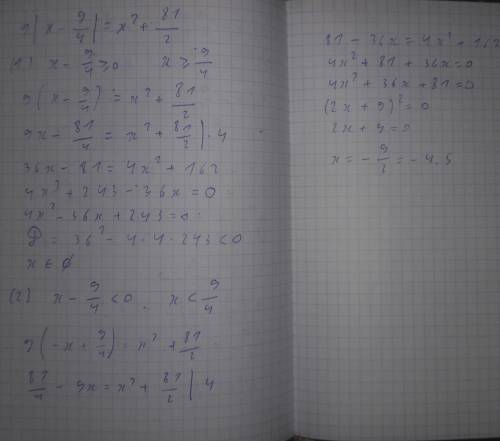 9|x - 9/4| = x² + 81/2
(1) x - 9/4 ≥ 0   x ≥ 9/4
9(x - 9/4) = x² + 81/2
9x - 81/4 = x² + 81/2 | · 4
36x - 81 = 4x² + 162
4x² + 243 - 36x = 0
4x² - 36x + 243 = 0
D = 36² - 4 · 4 · 243 < 0
x ∈ ∅
(2) x - 9/4 < 0, x < 9/4
9(-x + 9/4) = x² + 81/2
81/4 - 9x = x² + 81/2 | · 4
81 - 36x = 4x² + 162
4x² + 81 + 36x = 0
4x² + 36x + 81 = 0
(2x + 9)² = 0
2x + 9 = 0
x = - 9/2 = - 4.5